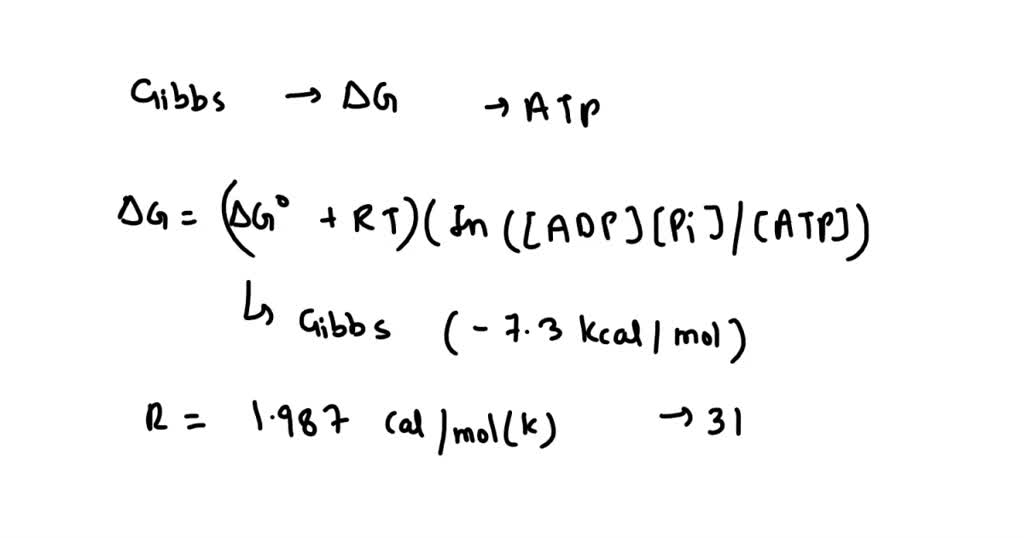 Gibbs → ΔG → ATP
ΔG = (ΔG° + RT)(In ([ADP][Pi]/[ATP])
↳ Gibbs (-7.3 kcal/mol)
R = 1.987 cal/mol(k) → 31